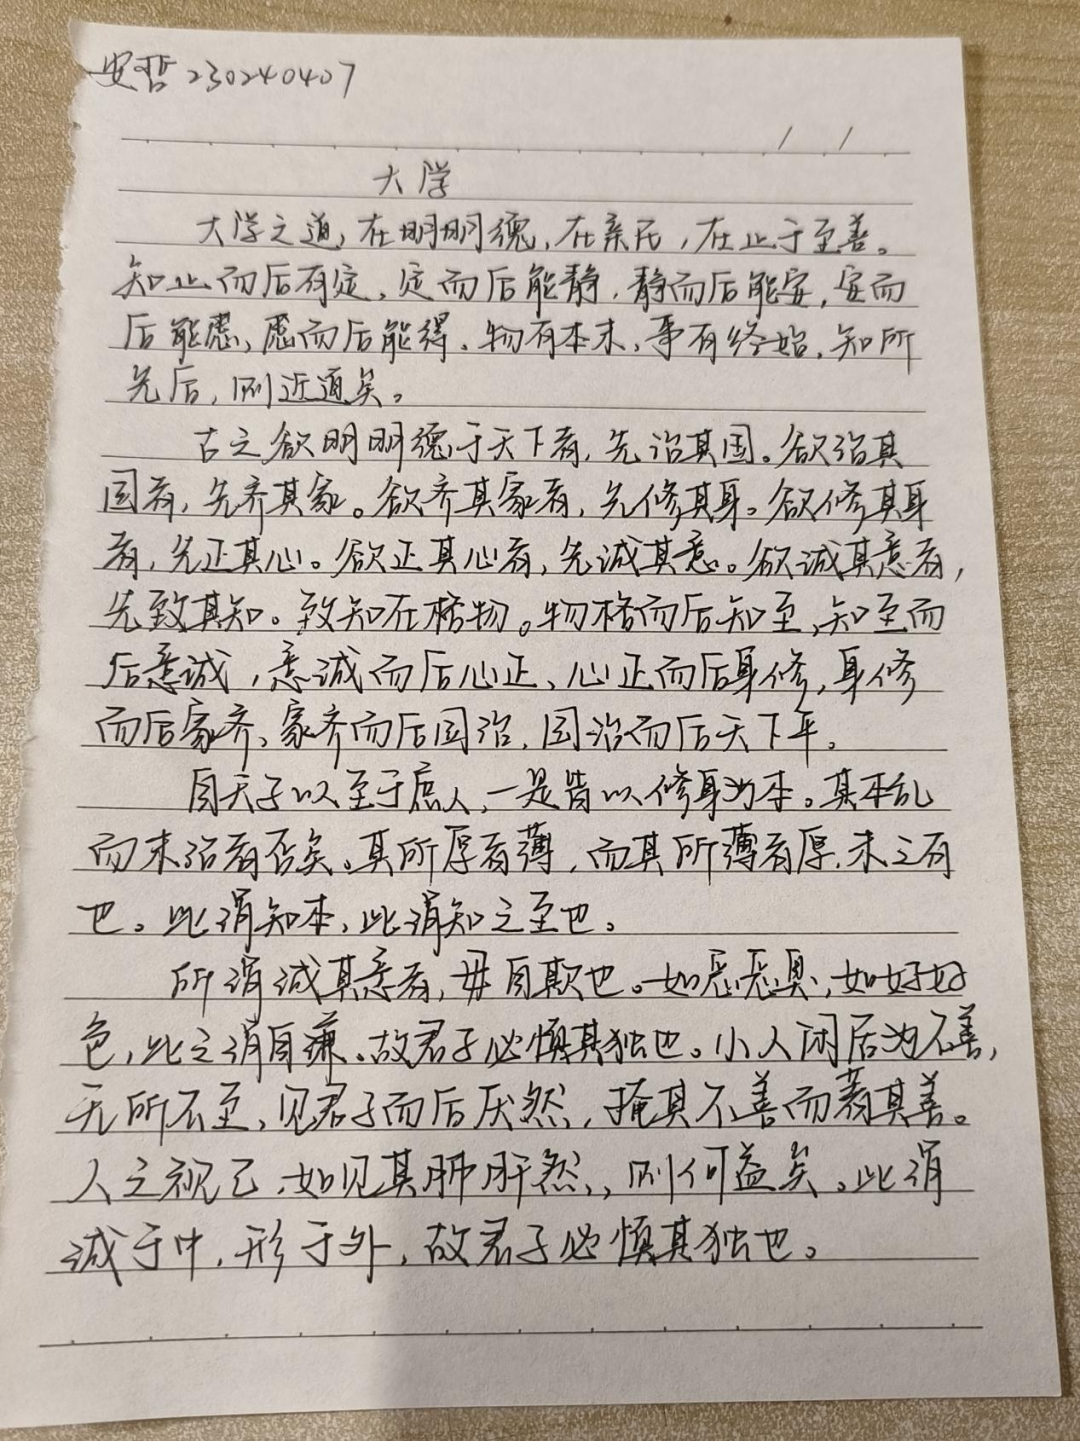 安哲 230240407
/ /
大学
大学之道，在明明德，在亲民，在止于至善。
知止而后有定，定而后能静，静而后能安，安而
后能虑，虑而后能得。物有本末，事有终始，知所
先后，则近道矣。
古之欲明明德于天下者，先治其国。欲治其
国者，先齐其家。欲齐其家者，先修其身。欲修其身
者，先正其心。欲正其心者，先诚其意。欲诚其意者，
先致其知。致知在格物。物格而后知至，知至而
后意诚，意诚而后心正、心正而后身修，身修
而后家齐、家齐而后国治，国治而后天下平。
自天子以至于庶人，一是皆以修身为本。其本乱
而末治者否矣。其所厚者薄，而其所薄者厚，未之有
也。此谓知本，此谓知之至也。
所谓诚其意者，毋自欺也。如恶恶臭，如好好
色，此之谓自谦。故君子必慎其独也。小人闲居为不善，
无所不至，见君子而后厌然，掩其不善而著其善。
人之视己，如见其肺肝然，则何益矣。此谓
诚于中，形于外，故君子必慎其独也。